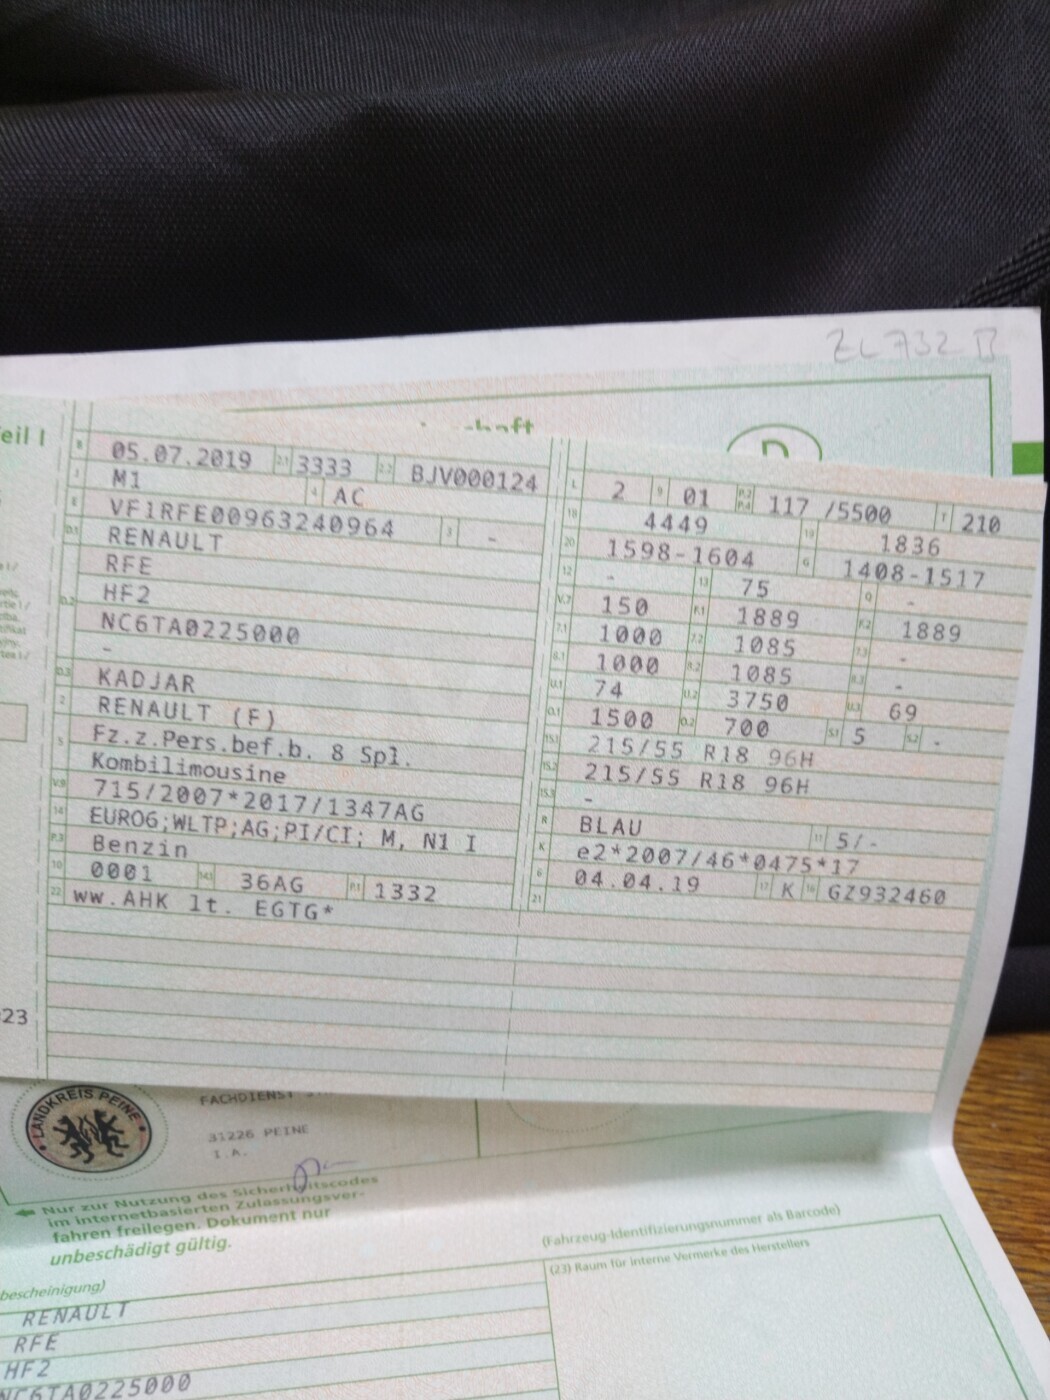 ZL 732 B
eil I
B 05.07.2019 2.1 3333 2.2 BJV000124
J M1 4 AC
E VF1RFE00963240964 3 -
D.1 RENAULT
RFE
D.2 HF2
NC6TA0225000
-
D.3 KADJAR
2 RENAULT (F)
5 Fz.z.Pers.bef.b. 8 Spl.
Kombilimousine
V.9 715/2007*2017/1347AG
14 EURO6;WLTP;AG;PI/CI; M, N1 I
P.3 Benzin
10 0001 14.1 36AG P.1 1332
22 ww.AHK lt. EGTG*
L 2 9 01 P.2 P.4 117 /5500 T 210
18 4449 19 1836
20 1598-1604 G 1408-1517
12 - 13 75 Q -
V.7 150 F.1 1889 F.2 1889
7.1 1000 7.2 1085 7.3 -
8.1 1000 8.2 1085 8.3 -
U.1 74 U.2 3750 U.3 69
O.1 1500 O.2 700 S.1 5 S.2 -
15.1 215/55 R18 96H
15.2 215/55 R18 96H
15.3 -
R BLAU 11 5/-
K e2*2007/46*0475*17
6 04.04.19 17 K 16 GZ932460
21
23
LANDKREIS PEINE
FACHDIENST
31226 PEINE
I.A.
Nur zur Nutzung des Sicherheitscodes
im internetbasierten Zulassungsver-
fahren freilegen. Dokument nur
unbeschädigt gültig.
(Fahrzeug-Identifizierungsnummer als Barcode)
bescheinigung)
(23) Raum für interne Vermerke des Herstellers
RENAULT
RFE
HF2
NC6TA0225000